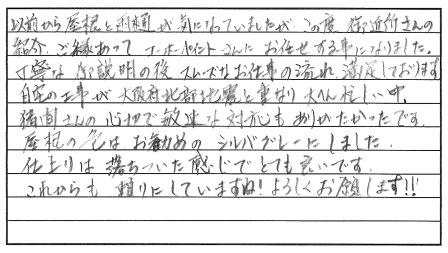 以前から屋根と雨樋が気になっていましたが この度 御近所さんの
紹介、ご縁あって ユーホーペイントさんに お任せする事になりました。
丁寧な御説明の後 スムーズなお仕事の流れ、満足しております
自宅の工事が 大阪府北部地震と重なり 大へん忙しい中、
さんの 心切で敏速な対応も ありがたかったです。
屋根の色は お勧めの シルバグレーにしました。
仕上りは 落ちついた感じで とても良いです。
これからも 頼りにしていますね! よろしくお願します!!